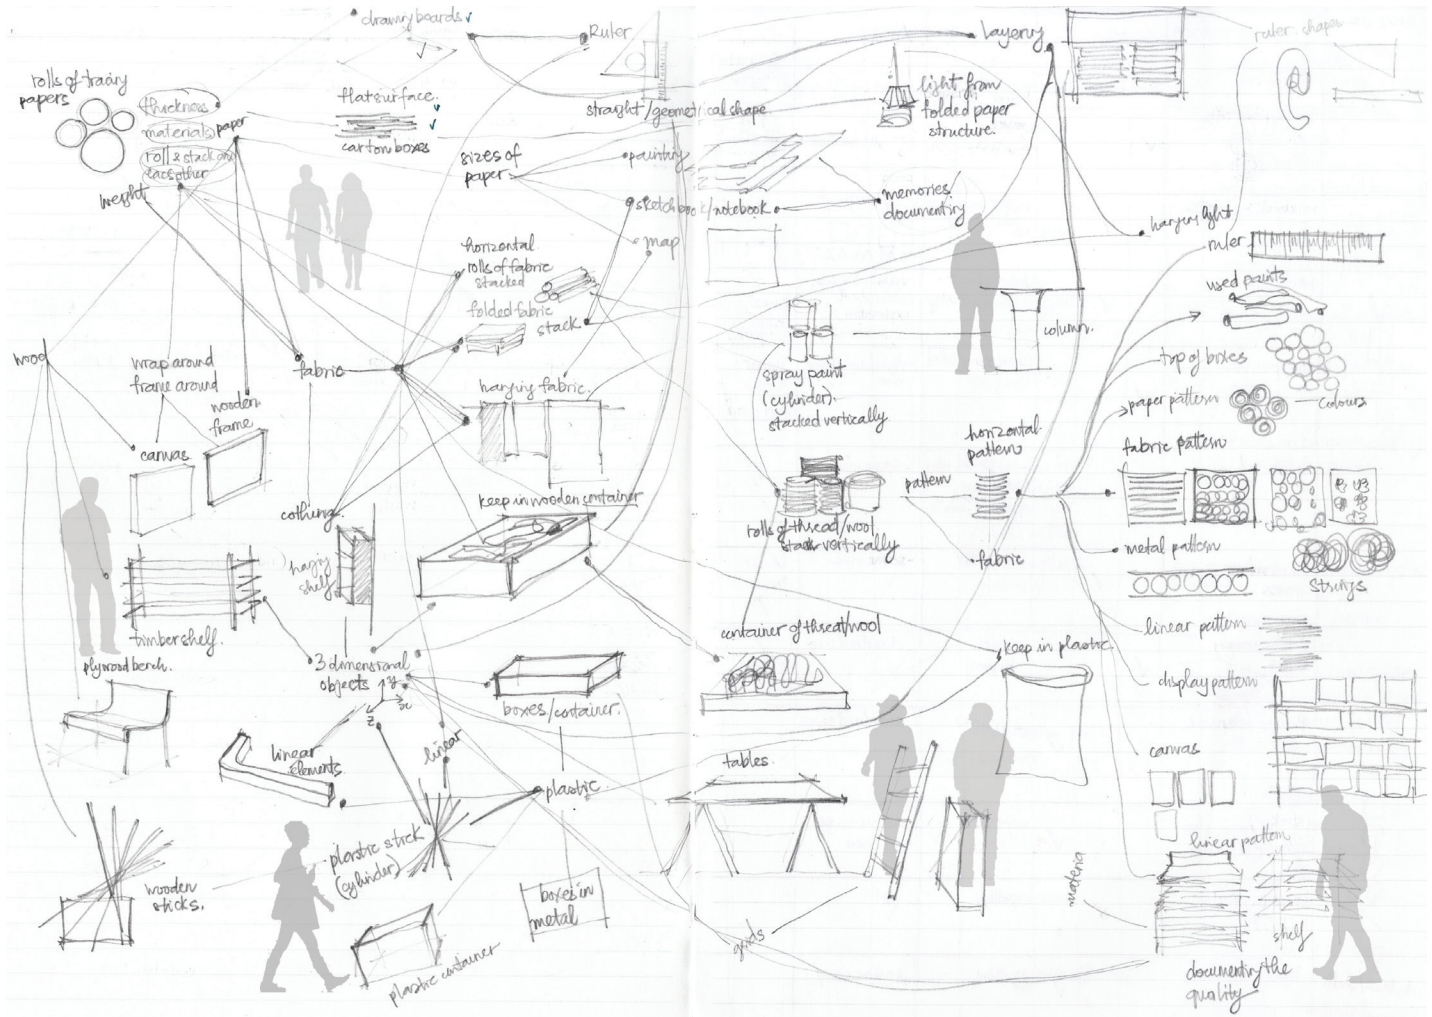 drawing boards
Ruler
layering
ruler shapes
rolls of tracing
papers
thickness
materials
paper
roll & stack on
each other
weight
flat surface.
carton boxes
straight/geometrical shape
light from
folded paper
structure.
sizes of
paper
painting
sketchbook/notebook
map
memories/
documenting
hanging light
ruler
horizontal
rolls of fabric
stacked
folded fabric
stack
used paints
column.
top of boxes
wood
wrap around
frame around
fabric
wooden
frame
canvas
hanging fabric.
spray paint
(cylinder).
stacked vertically
paper pattern
colours
horizontal
pattern
fabric pattern
clothing
keep in wooden container
pattern
rolls of thread/wool
stack vertically
fabric
metal pattern
strings
hanging
shelf
timber shelf.
plywood bench.
3 dimensional
objects
y
x
z
container of thread/wool
keep in plastic.
linear pattern
display pattern
boxes/container.
linear
elements
linear
plastic
tables
canvas
plastic stick
(cylinder)
wooden
sticks.
boxes in
metal
plastic container
grids
material
linear pattern
shelf
documenting the
quality